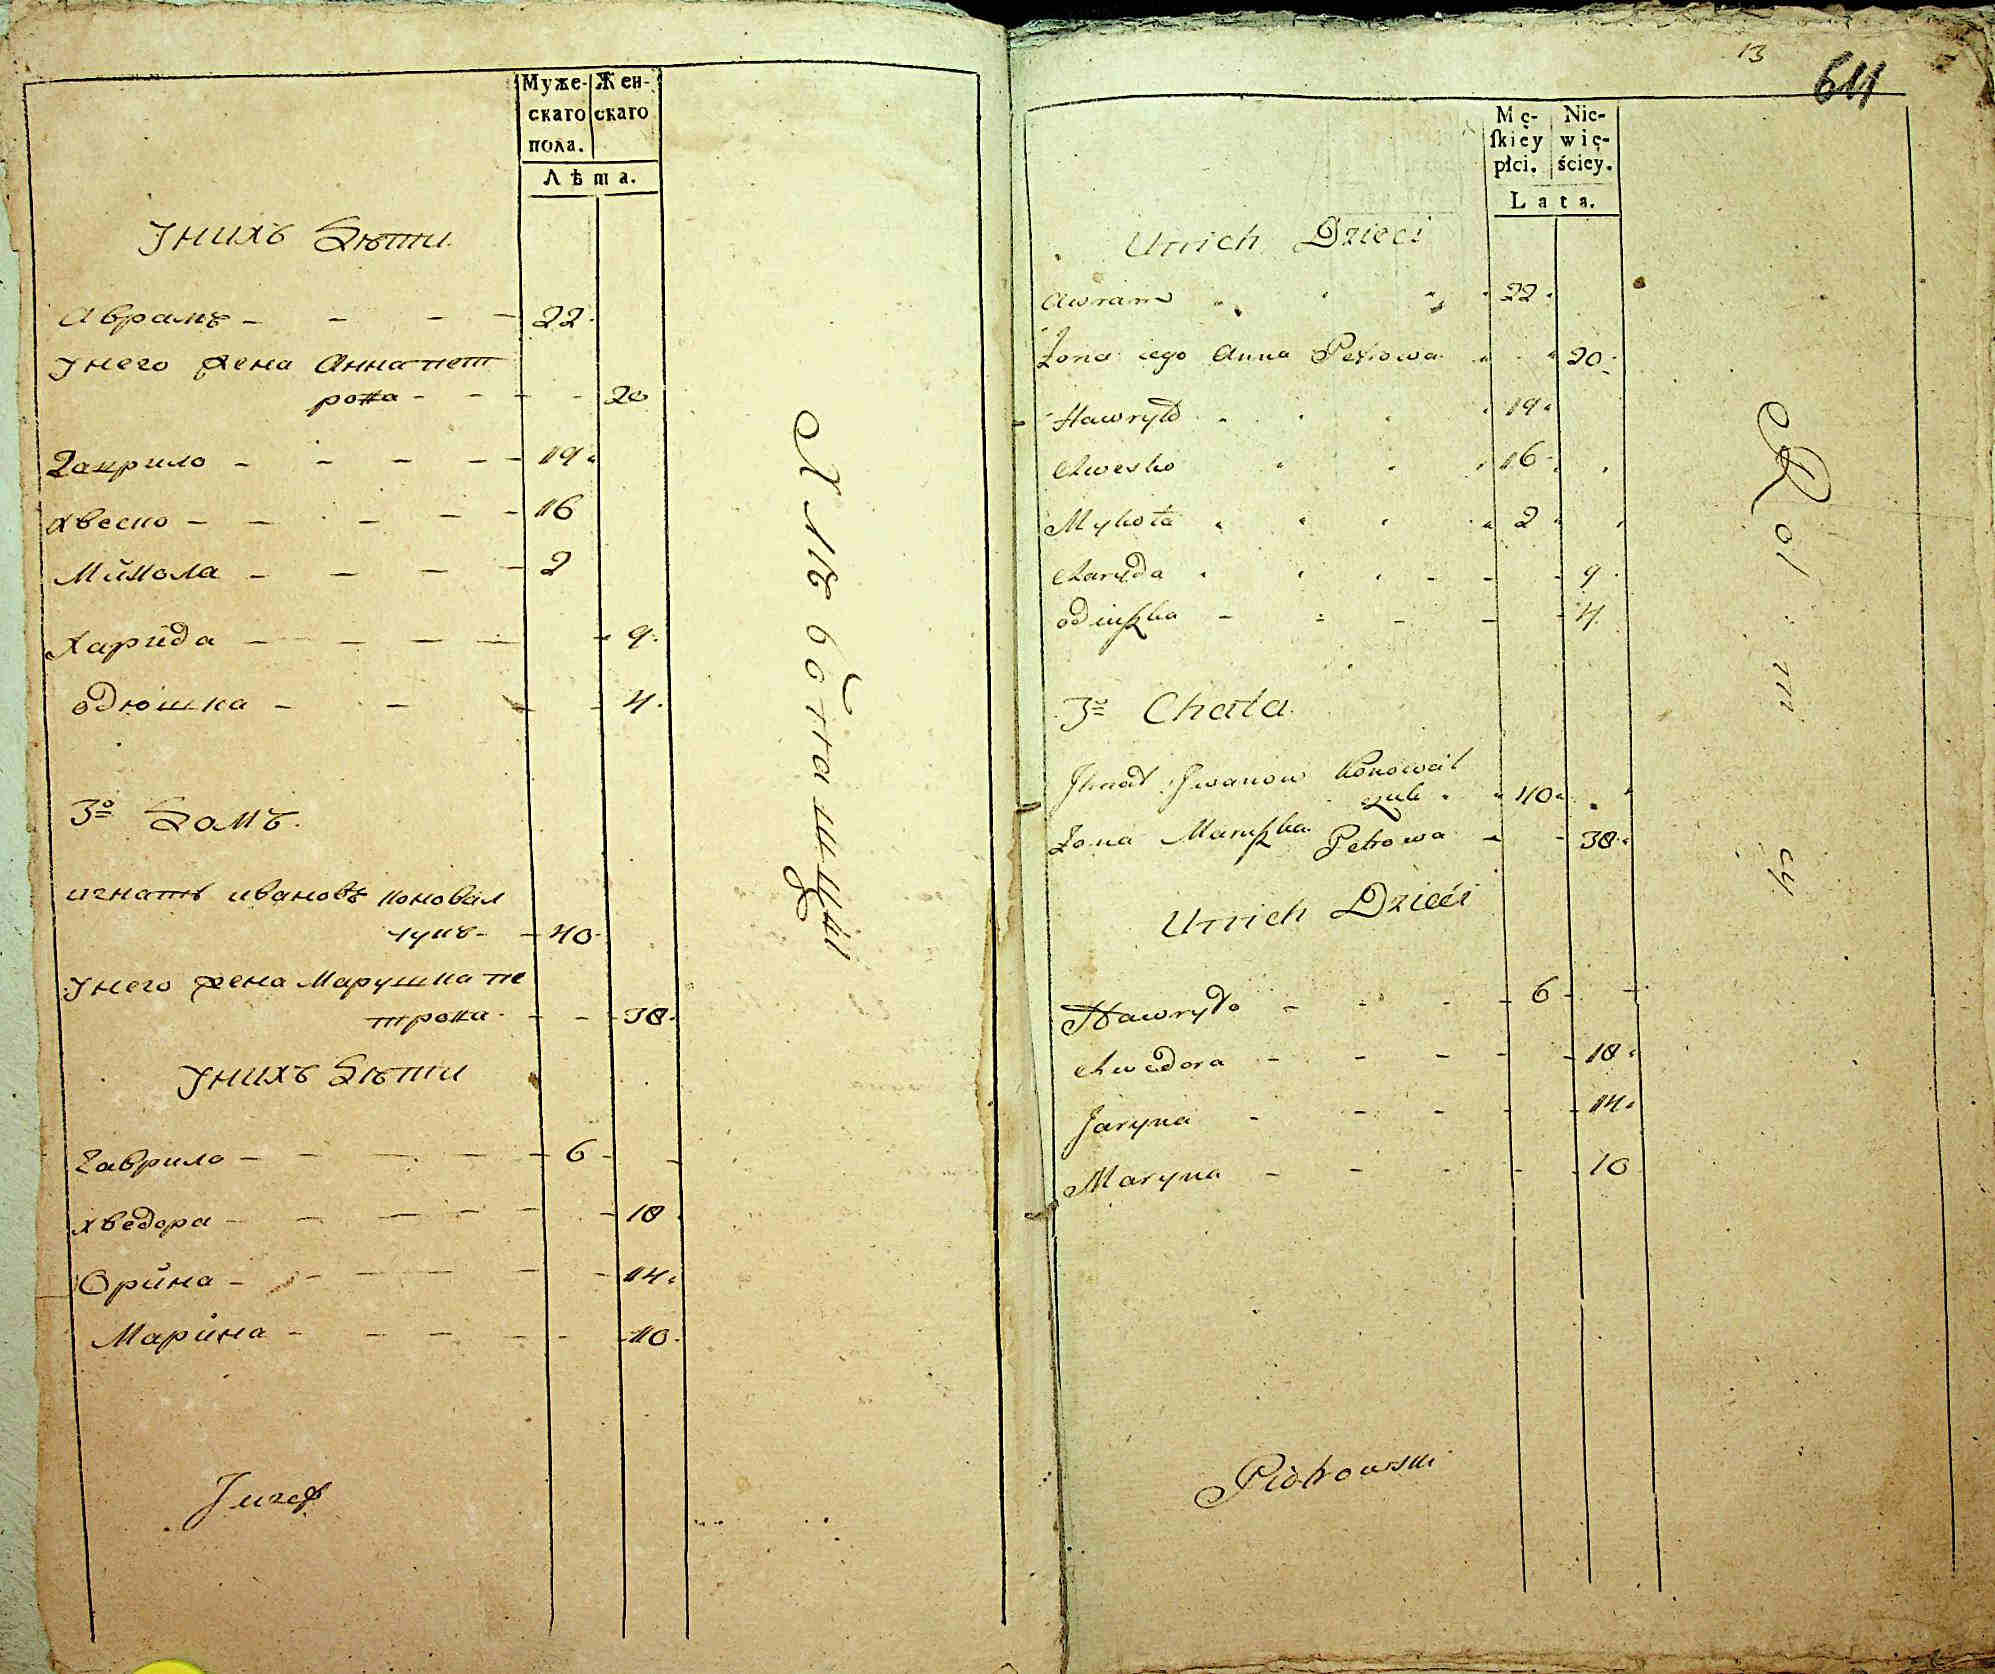 Муже- Жен-
скаго скаго
пола.
Лѣта.
Унихъ Дѣти
Аврамъ - - - - 22.
Унего жена Анна пет
рова - - - - 20
Гаврило - - - - - 19.
Хвеско - - - - - 16
Мийкола - - - - 2
Харийда - - - - - 9.
Одюшка - - - - 4.
3º Домъ.
Игнатъ Ивановъ Коновал
чукъ - - 40.
Унего жена Марушка пе
трова - - - 38.
Унихъ Дѣти
Гаврило - - - - - 6 - -
Хведора - - - - - - 18.
Орийна - - - - - - 14.
Марийна - - - - - 10.
Хлѣбопашцы
Juzef
13
611
Mę- Nie-
ſkiey wię-
płci. ściey.
Lata.
Unich Dzieci
Awram 22.
Żona iego Anna Petrowa 20.
Hawryło 19.
Chwesko 16.
Mykoła 2
Charyda 9.
Odiuszka 4.
3º Chata.
Ihnat Iwanow Konował
czuk 40.
Żona Maruszka Petrowa 38.
Unich Dzieci
Hawryło - - - - 6 -
Chwedora - - - - - 18.
Jaryna - - - - - 14.
Maryna - - - - - 10
Rolnicy
Piotrowski